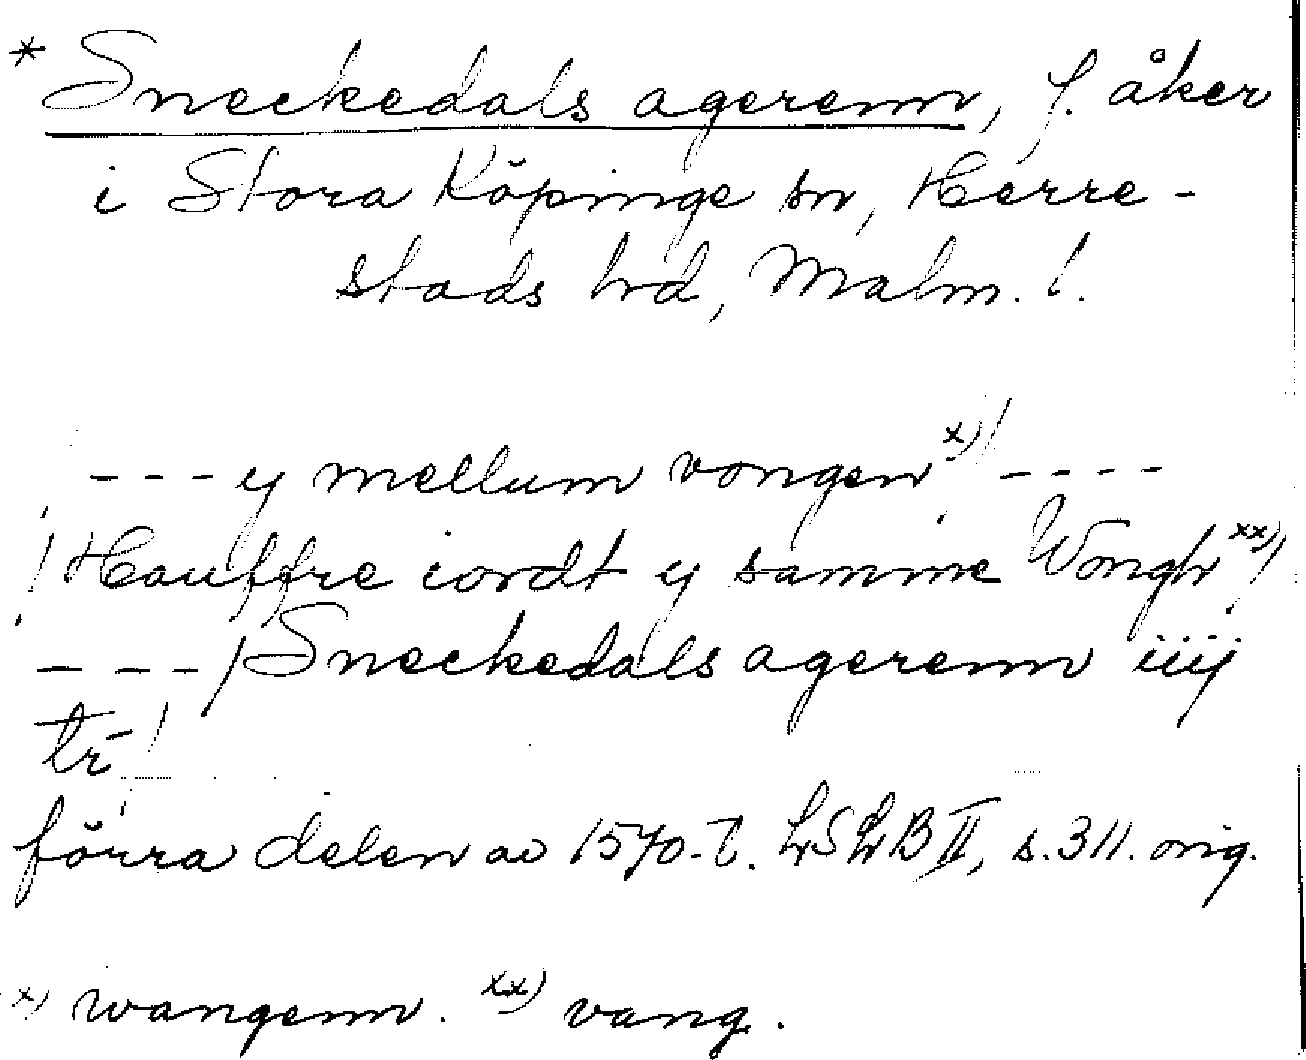 * Sneckedals agerenn, f. åker
i Stora Köpinge sn, Herre-
stads hd, Malm. l.
--- y mellum vongen x)/ ----
/ Hauffre iordt y samme Wongh xx)/
--- / Sneckedals agerenn iiij
tr̄ /
förra delen av 1570-t. LSLB II, s. 311. orig.
x) wangenn. xx) vang.